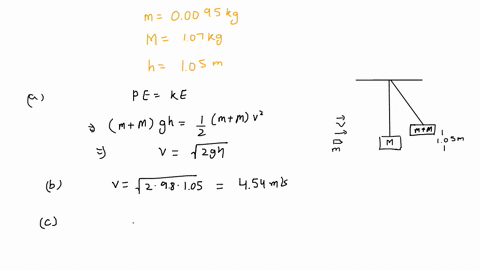 m = 0.0095 kg
M = 1.07 kg
h = 1.05 m
(a) PE = KE
⇒ (m+M) gh = 1/2 (m+M) v²
⇒) v = √2gh
(b) v = √2·9.8·1.05 = 4.54 m/s
(c)
v
m
M
m+M
1.05m